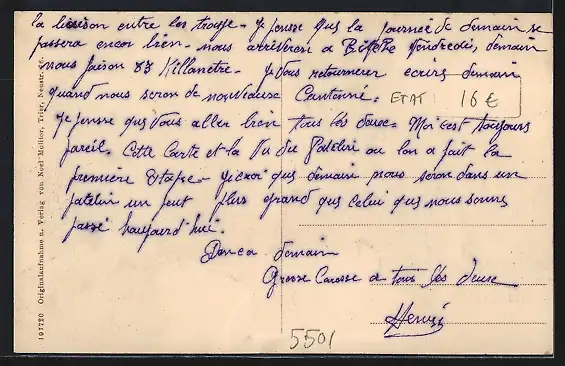 la liaison entre les troupe - Je pense que la journée de demain se
passera encor bien - nous arriveron a Vendredi, demain
nous faison 83 Killometre - Je vous retournerer ecrire demain
quand nous seron de nouveause Cantonné.
ETAT : 16 €
Je pense que vous aller bien tous lés deuse. Moi c'est toujours
pareil. Cette Carte et la Vu du Patelin ou lon a fait la
première Etape - Je croi que demain nous seron dans un
patelin un peut plus grand que celui que nous somme
passé haujourd'hui.
Donc a demain
Grosse Carosse a tous lés deuse
Henri
5501
197720 Originalaufnahme u. Verlag von Neel Molitor, Trier, Neustr.